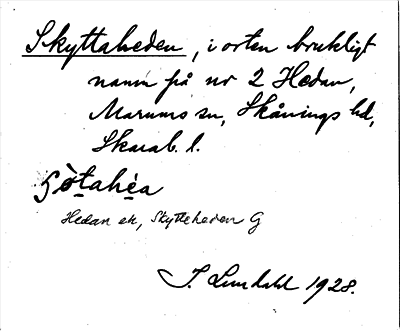 Skyttaheden, i orten brukligt
namn på nr 2 Hedan,
Marums sn, Skånings hd,
Skarab. l.
ʃòtahèa
Hedan ek, Skytteheden G
I. Lundahl 1928.